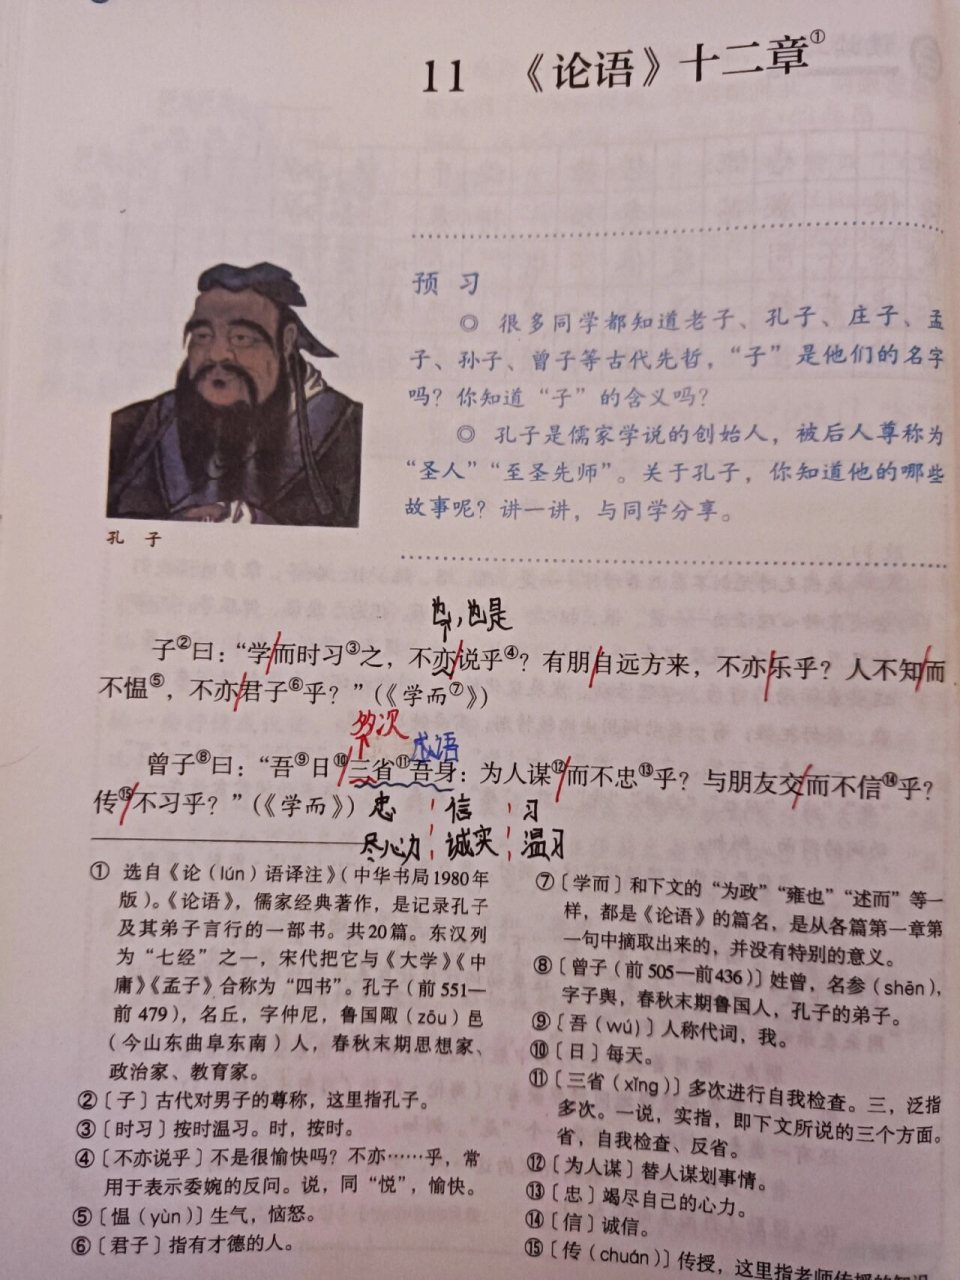 11 《论语》十二章①
预 习
◎ 很多同学都知道老子、孔子、庄子、孟
子、孙子、曾子等古代先哲，“子”是他们的名字
吗？你知道“子”的含义吗？
◎ 孔子是儒家学说的创始人，被后人尊称为
“圣人”“至圣先师”。关于孔子，你知道他的哪些
故事呢？讲一讲，与同学分享。
孔 子
也，也是
子②曰：“学而时习③之，不亦说乎④？有朋自远方来，不亦乐乎？人不知而
不愠⑤，不亦君子⑥乎？”（《学而⑦》）
多次
成语
曾子⑧曰：“吾⑨日⑩三省⑪吾身：为人谋⑫而不忠⑬乎？与朋友交而不信⑭乎？
传⑮不习乎？”（《学而》）
忠 信 习
尽心力 诚实 温习
① 选自《论（lún）语译注》（中华书局1980年
版）。《论语》，儒家经典著作，是记录孔子
及其弟子言行的一部书。共20篇。东汉列
为“七经”之一，宋代把它与《大学》《中
庸》《孟子》合称为“四书”。孔子（前551—
前479），名丘，字仲尼，鲁国陬（zōu）邑
（今山东曲阜东南）人，春秋末期思想家、
政治家、教育家。
②〔子〕古代对男子的尊称，这里指孔子。
③〔时习〕按时温习。时，按时。
④〔不亦说乎〕不是很愉快吗？不亦……乎，常
用于表示委婉的反问。说，同“悦”，愉快。
⑤〔愠（yùn）〕生气，恼怒。
⑥〔君子〕指有才德的人。
⑦〔学而〕和下文的“为政”“雍也”“述而”等一
样，都是《论语》的篇名，是从各篇第一章第
一句中摘取出来的，并没有特别的意义。
⑧〔曾子（前505—前436）〕姓曾，名参（shēn），
字子舆，春秋末期鲁国人，孔子的弟子。
⑨〔吾（wú）〕人称代词，我。
⑩〔日〕每天。
⑪〔三省（xǐng）〕多次进行自我检查。三，泛指
多次。一说，实指，即下文所说的三个方面。
省，自我检查、反省。
⑫〔为人谋〕替人谋划事情。
⑬〔忠〕竭尽自己的心力。
⑭〔信〕诚信。
⑮〔传（chuán）〕传授，这里指老师传授的知识